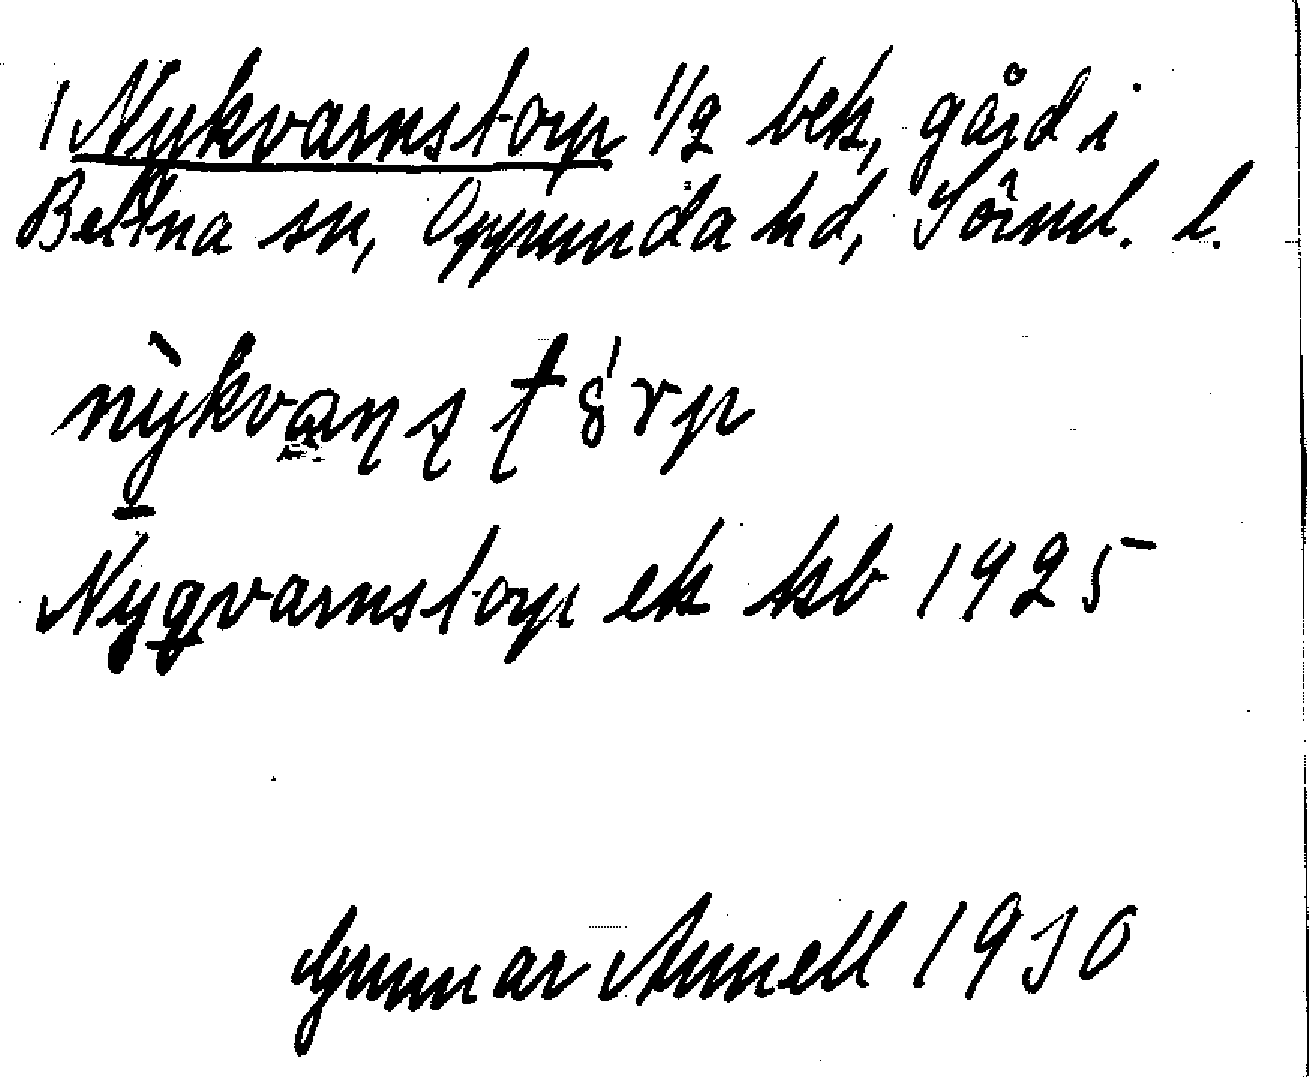 1 Nykvarnstorp 1/2 bek, gård i
Bettna sn, Oppunda hd, Sörml. l.
Nyqvarnstorp ek kb 1925
Gunnar Annell 1930